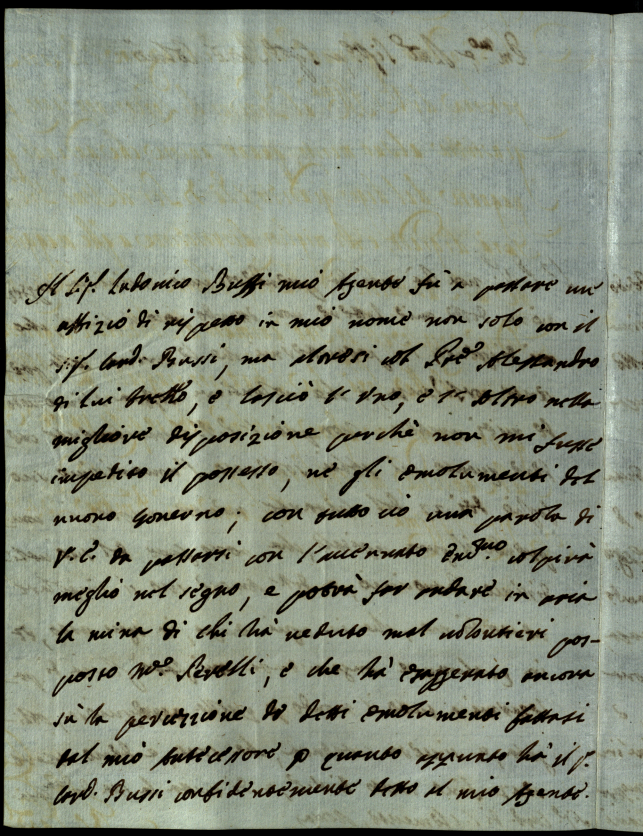 Il Sig.r Ludovico Bussi mio Agente fù a passare un'
uffizio di rispetto in mio nome non solo con il
Sig.r Card. Bussi, ma altresi col Pre Alessandro
di lui frello, e lasciò l'uno, e l'Altro nella
migliore disposizione perchè non mi fusse
impedito il possesso, nè gli emolumenti del
nuovo Governo; con tutto ciò una parola di
V.E. da passarsi con l'accennato Em.mo colpirà
meglio nel segno, e potrà far andare in aria
la mina di chi hà veduto mal volontieri pos-
posto Mr. , e che hà esaggerato ancora
sù la percezzione de detti emolumenti fattasi
dal mio Antecessore p quanto appunto hà il S.r
Card. Bussi confidentemente detto al mio Agente.